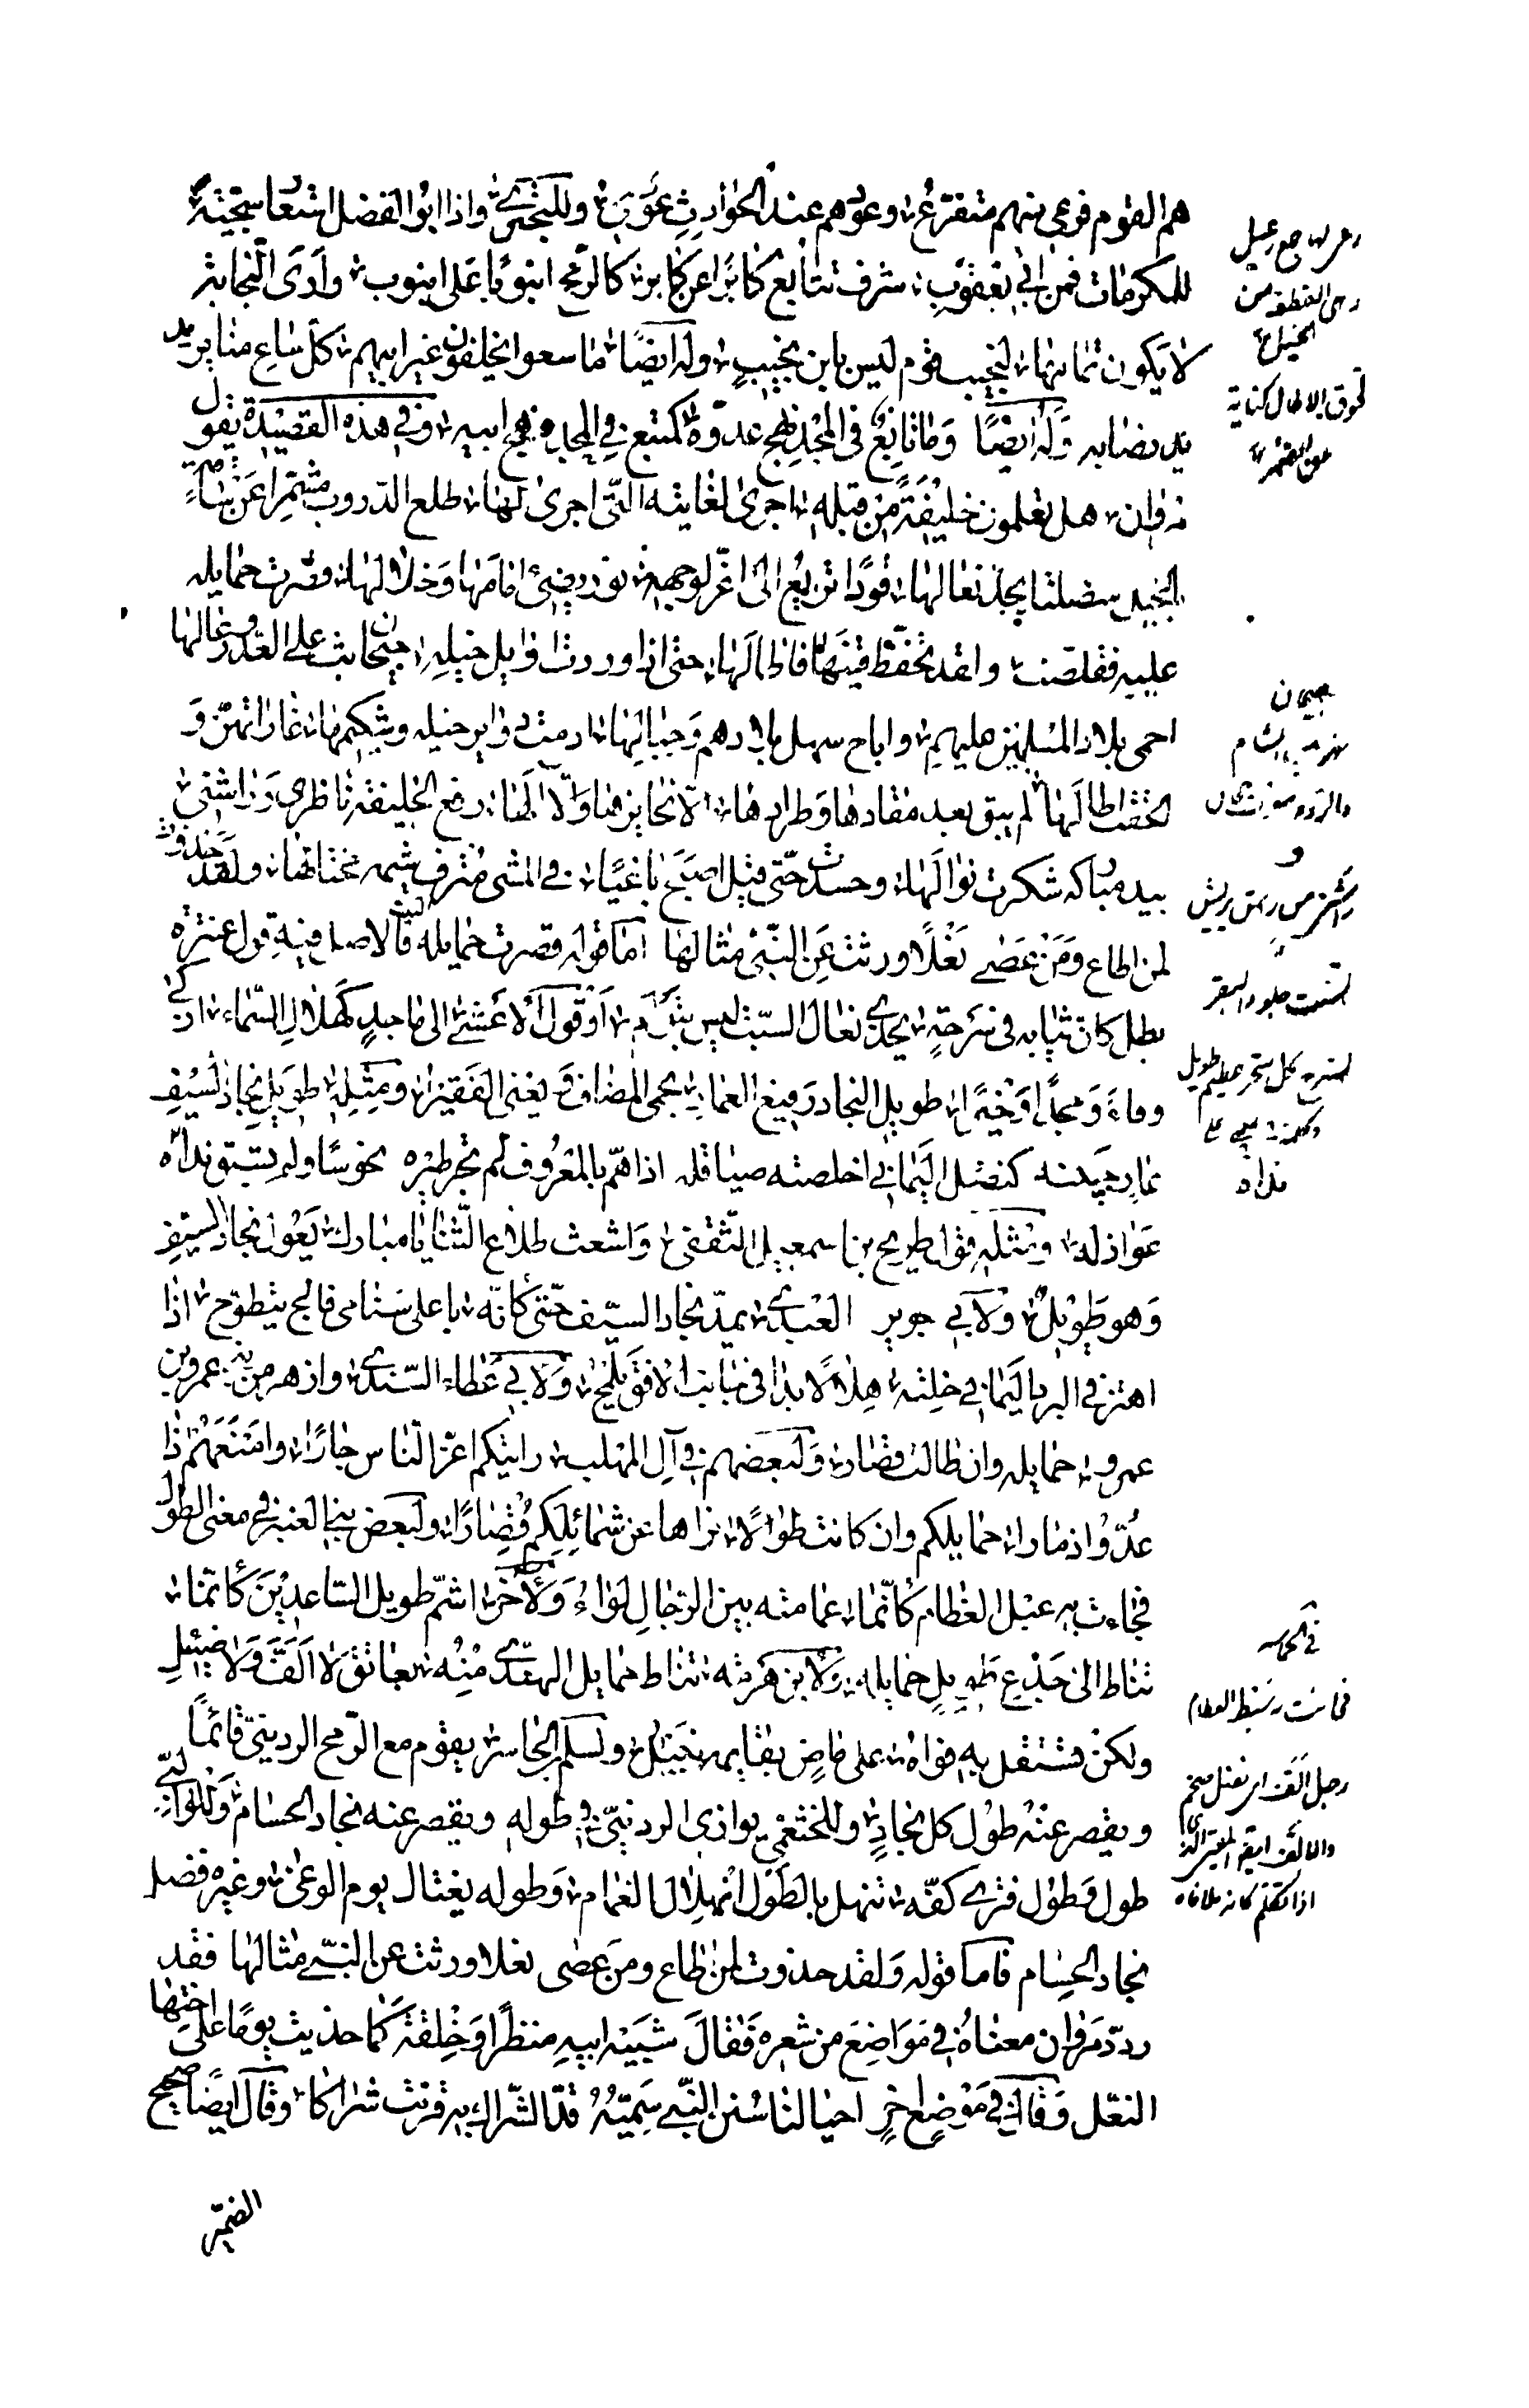 هم القوم فرعي منهم متفرع وعودهم عند الحوادث عودي وللبحتري واذا ابو الفضل استعار سجية
للمكرمات فمن ابي يعقوب شرف تتابع كابرا عن كابر كالرمح انبوبا على انبوب وارى النجابة
لا يكون تمامها لنجيب قوم ليس بابن نجيب وله ايضا ما سعوا يخلفون غير ابيهم كل ساع منا يريد
نصابه وله ايضا وما تابع في المجد نهج عدوه كمتبع في المجد نهج ابيه وفي هذه القصيدة يقول
مروان هل تعلمون خليفة من قبله اجرى لغايته التي اجرى لها طلع الدروب مشمرا عن ساقه
بالخيل منصلتا يجذ نعالها قودا تريع الى اغر لوجهه نور يضيء امامها وخلالها قصرت حمايله
عليه فقلصت ولقد تحفظ قينها فاطالها حتى اذا وردت اوايل خيله جيحان بث على العدو رعالها
احمى بلاد المسلمين عليهم واباح سهل بلادهم وجبالها ادمت دوابر خيله وشكيمها غاراتهن و
الحقت اطالها لم يبق بعد مقادها وطرادها الا نحايزها والا الها رفع الخليفة ناظري وراشني
بيد مباركة شكرت نوالها وحسدت حتى قيل اصبح باغيا في المشي مترف شيمة مختالها ولقد حذوت
لمن اطاع ومن عصى نعلا ورثت عن النبي مثالها اما قوله قصرت حمايله البيت فالاصل فيه قول عنترة
بطل كان ثيابه في سرحة يحذى نعال السبت ليس بتوأم او قول الاعشى الى ماجد كهلال السماء ازكى
وفاء ومجدا وخيرا طويل النجاد رفيع العماد يحمي المضاف ويغني الفقيرا ومثله طويل نجاد السيف
عار جبينه كنصل اليماني اخلصته صياقله اذا هم بالمعروف لم تجر طيره نحوسا ولم تسبق نداه
عواذله ومثله قول طريح بن اسمعيل الثقفي واشعث طلاع الثنايا مبارك يعول نجاد السيف
وهو طويل ولابي جوير العبدي يمد نجاد السيف حتى كانه باعلى سنامي فالج يتطوح اذا
اهتز في البرد اليماني خلته هلالا بدا في جانب الافق يلمح ولابي عطاء السندي وازهر من بني عمرو بن
عمرو حمايله وان طالت قصار ولبعضهم في آل المهلب رايتكم اعز الناس جارا وامنعهم اذا
عدوا ذمارا حمايلكم وان كانت طوالا نراها عن شمائلكم قصارا ولبعض بني العنبر في معنى الطول
فجاءت به عبل العظام كانما عمامته بين الرجال لواء ولآخر اشم طويل الساعدين كانما
تناط الى جذع طويل حمايله ولابن هرمة تناط حمايل الهندي منه بعاتق لا الف ولا ضئيل
ولكن تستقل به قواه على ماض بقايمه نجيل ولسلم الخاسر يقوم مع الرمح الرديني قائما
ويقصر عنه طول كل نجاد وللخثعمي يوازي الرديني في طوله ويقصر عنه نجاد الحسام وللوائلي
طول وطول فترى كفه تنهل بالطول انهلال الغمام وطوله يغتال يوم الوغى وغيره فضل
نجاد الحسام فاما قوله ولقد حذوت لمن اطاع ومن عصى نعلا ورثت عن النبي مثالها فقد
ردد مروان معناه في مواضع من شعره فقال شبيه ابيه منظرا وخلقة كما حذيت يوما على اختها
النعل وقال في موضع آخر احيا لنا سنن النبي سميه قد الشراك به قرنت شراكا وقال ايضا صحيح
الضمير
رعالها جمع رعيل
وهي القطعة من
الخيل
لحوق الاطال كناية
عن الضمر
جيحان
نهر بالشام
السبت جلود البقر
السرح كل شجر عظيم طويل
في الحماسة
فجاءت به سبط العظام
رجل الف اي ثقيل
اذا تكلم